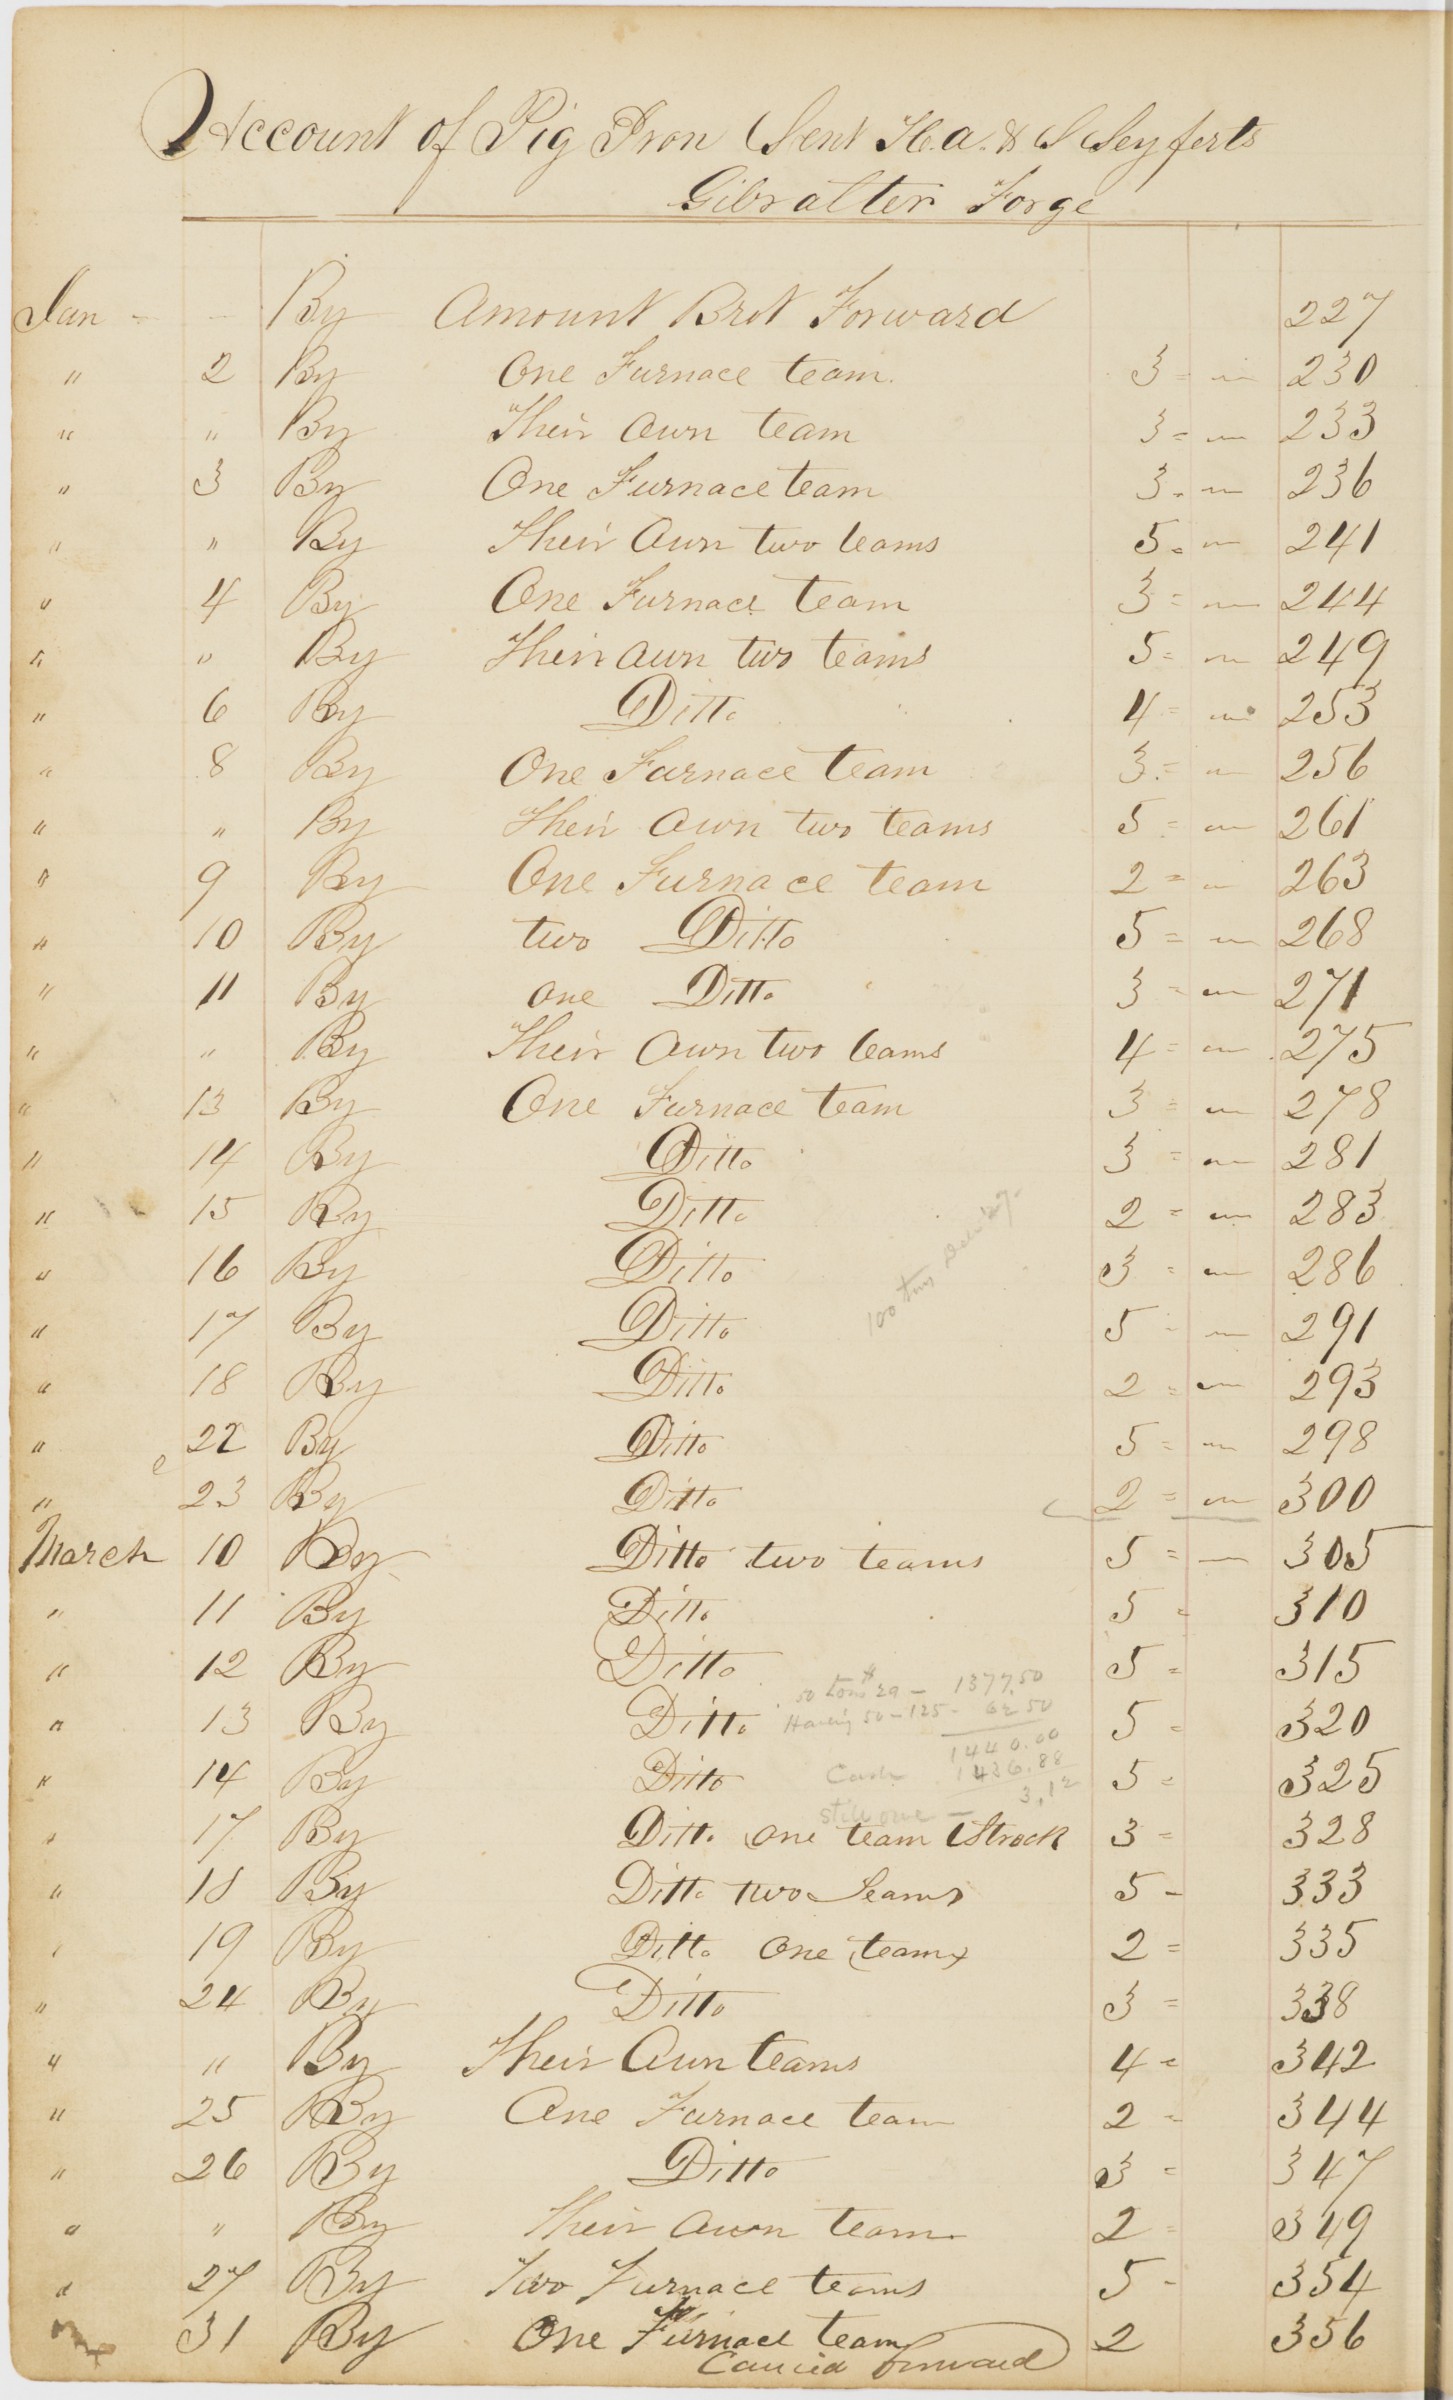 Account of Pig Iron Sent H. A. & S Seyferts
Gibralter Forge
Jan - - By Amount Brot Forward 227
" 2 By One Furnace team. 3 = " 230
" " By Their Own team 3 = " 233
" 3 By One Furnace team 3 = " 236
" " By Their Own two teams 5 = " 241
" 4 By One Furnace team 3 = " 244
" " By Their Own two teams 5 = " 249
" 6 By Ditto 4 = " 253
" 8 By One Furnace team 3 = " 256
" " By Their Own two teams 5 = " 261
" 9 By One Furnace team 2 = " 263
" 10 By two Ditto 5 = " 268
" 11 By One Ditto 3 = " 271
" " By Their Own two teams 4 = " 275
" 13 By One Furnace team 3 = " 278
" 14 By Ditto 3 = " 281
" 15 By Ditto 2 = " 283
" 16 By Ditto 3 = " 286
100 tons
" 17 By Ditto 5 - " 291
" 18 By Ditto 2 = " 293
" 22 By Ditto 5 = " 298
" 23 By Ditto 2 = " 300
March 10 By Ditto two teams 5 = - 305
" 11 By Ditto 5 = 310
" 12 By Ditto 5 = 315
50 tons $29 - 1377.50
" 13 By Ditto 5 = 320
Hauling 50 - 125 - 62.50
1440.00
" 14 By Ditto 5 = 325
Cash 1436.88
still owe - 3.12
" 17 By Ditto One team Strock 3 = 328
" 18 By Ditto two teams 5 - 333
" 19 By Ditto One team 2 = 335
" 24 By Ditto 3 = 338
" " By Their Own teams 4 = 342
" 25 By One Furnace team 2 - 344
" 26 By Ditto 3 = 347
" " By Their Own team 2 = 349
" 27 By Two Furnace teams 5 - 354
31 By One Furnace team 2 356
Carried forward